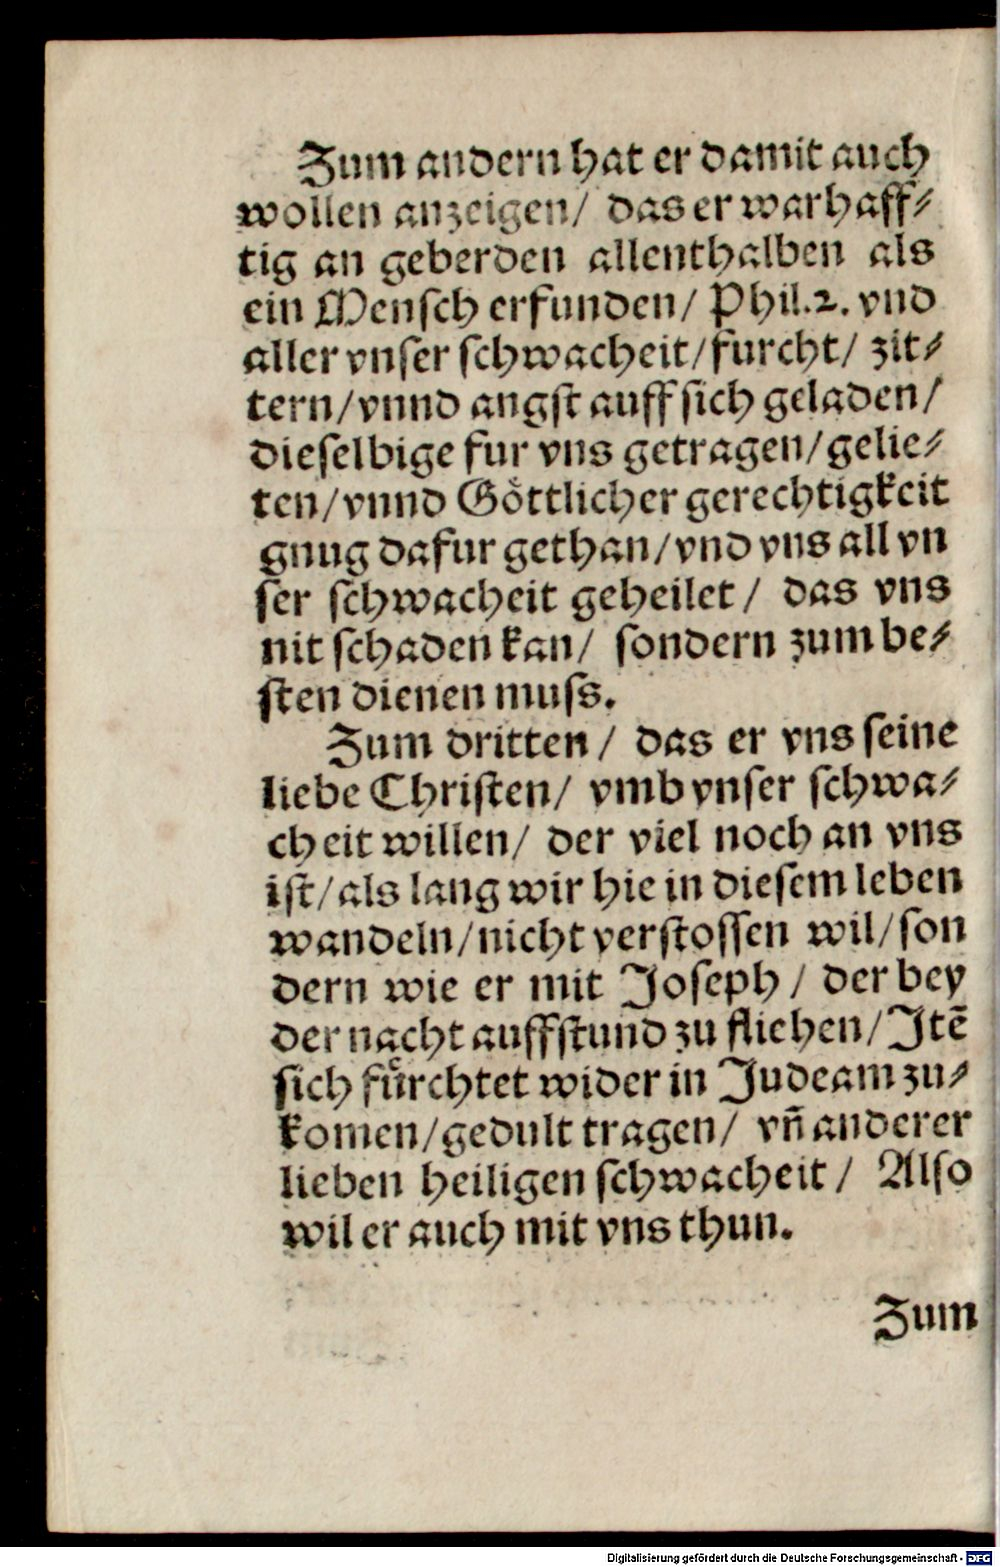 Zum andern hat er damit auch
wollen anzeigen/ das er warhaff⸗
tig an geberden allenthalben als
ein Menſch erfunden/ Phil.2. vnd
aller vnſer ſchwacheit/furcht/ zit⸗
tern/vnnd angſt auff ſich geladen/
dieſelbige fur vns getragen/gelie⸗
ten/vnnd Goͤttlicher gerechtigkeit
gnug dafur gethan/vnd vns all vn
ſer ſchwacheit geheilet/ das vns
nit ſchaden kan/ ſondern zum be⸗
ſten dienen muſs.
Zum dritten/ das er vns ſeine
liebe Chriſten/ vmb vnſer ſchwa⸗
cheit willen/ der viel noch an vns
iſt/als lang wir hie in dieſem leben
wandeln/nicht verſtoſſen wil/ſon
dern wie er mit Joſeph/ der bey
der nacht auffſtund zu fliehen/Jtẽ
ſich fuͤrchtet wider in Judeam zu⸗
komen/gedult tragen/ vñ anderer
lieben heiligen ſchwacheit/ Alſo
wil er auch mit vns thun.
Zum
Digitalisierung gefördert durch die Deutsche Forschungsgemeinschaft - DFG